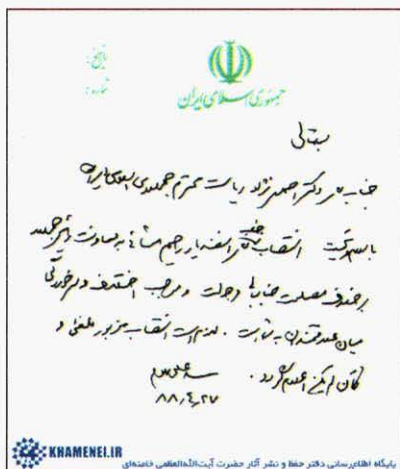 تاریخ:
شماره:
جمهوری اسلامی ایران
بسمه‌تعالی
جناب آقای دکتر احمدی نژاد ریاست محترم جمهوری اسلامی ایران
با سلام و تحیت انتصاب جناب آقای اسفندیار رحیم مشائی به معاونت رئیس جمهور
بر خلاف مصلحت جنابعالی و دولت و موجب اختلاف و سرخوردگی
میان علاقمندان به شما است. لازم است انتصاب مزبور ملغی و
کان لم یکن اعلام گردد.
سید علی خامنه‌ای
۸۸,۴,۲۷
KHAMENEI.IR
پایگاه اطلاع‌رسانی دفتر حفظ و نشر آثار حضرت آیت‌الله‌العظمی خامنه‌ای